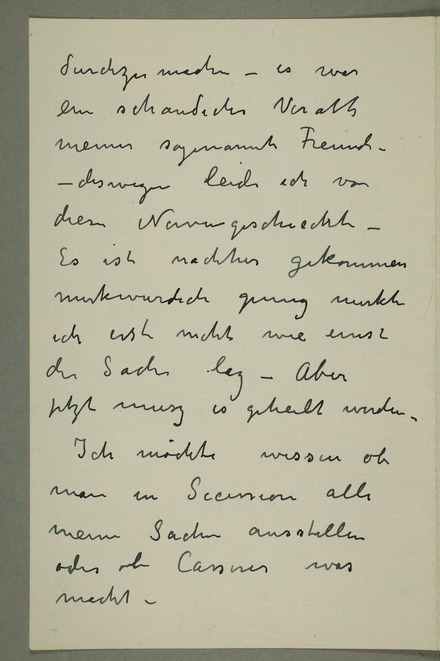 durchzumachen – es war
ein schändicher Verath
meiner sogenannte Freunde –
– deswegen leide ich von
diesen Nervengeschichte –
Es ist nachher gekommen
merkwurdich genug merkte
ich erst nicht wie ernst
die Sache lag – Aber
jetzt musz es geheilt werden –
Ich möchte wissen ob
man in Secession alle
meine Sachen ausstellen
oder ob Cassirer was
macht –